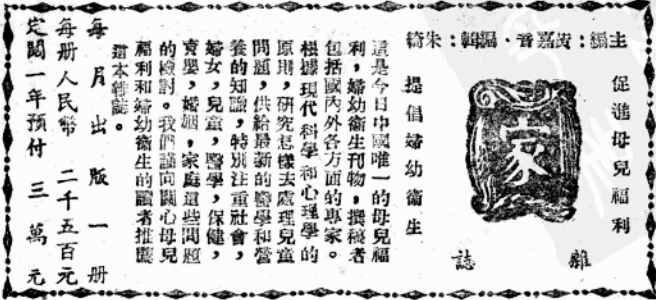 主編：黃嘉音・編輯：朱綺
促進母兒福利
家
雜誌
提倡婦幼衛生
這是今日中國唯一的母兒福
利，婦幼衛生刊物，撰稿者
包括國內外各方面的專家。
根據現代科學和心理學的
原則，研究怎樣去處理兒童
問題，供給最新的醫學和營
養的知識，特別注重社會，
婦女，兒童，醫學，保健，
育嬰，婚姻，家庭這些問題
的檢討。我們謹向關心母兒
福利和婦幼衛生的讀者推薦
這本雜誌。
每月出版一册
每册人民幣 二千五百元
定閱一年預付 三萬元